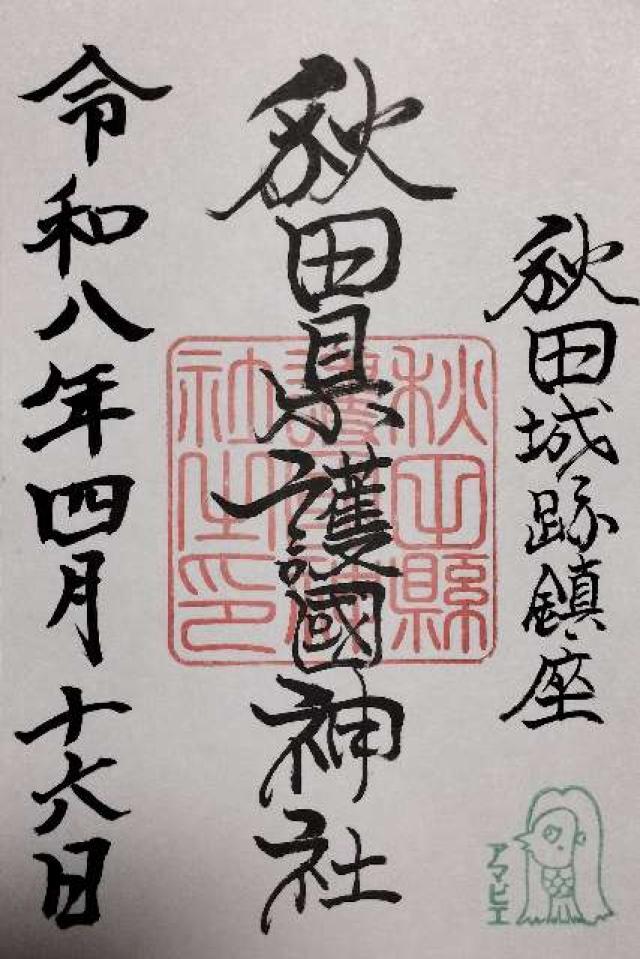 秋田城跡鎮座
秋田県護國神社
秋田縣護國神社之印
令和八年四月十六日
アマビエ